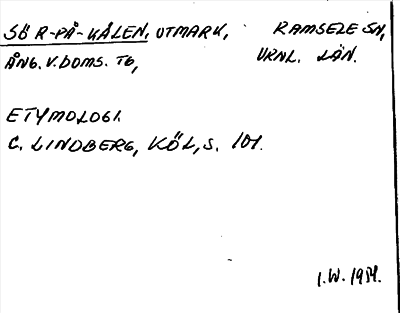 SÖR-PÅ-KÅLEN, UTMARK, RAMSELE SN,
ÅNG. V. DOMS. TG, VRNL. LÄN.
ETYMOLOGI.
C. LINDBERG, KÖL, S. 101.
I.W. 1954.